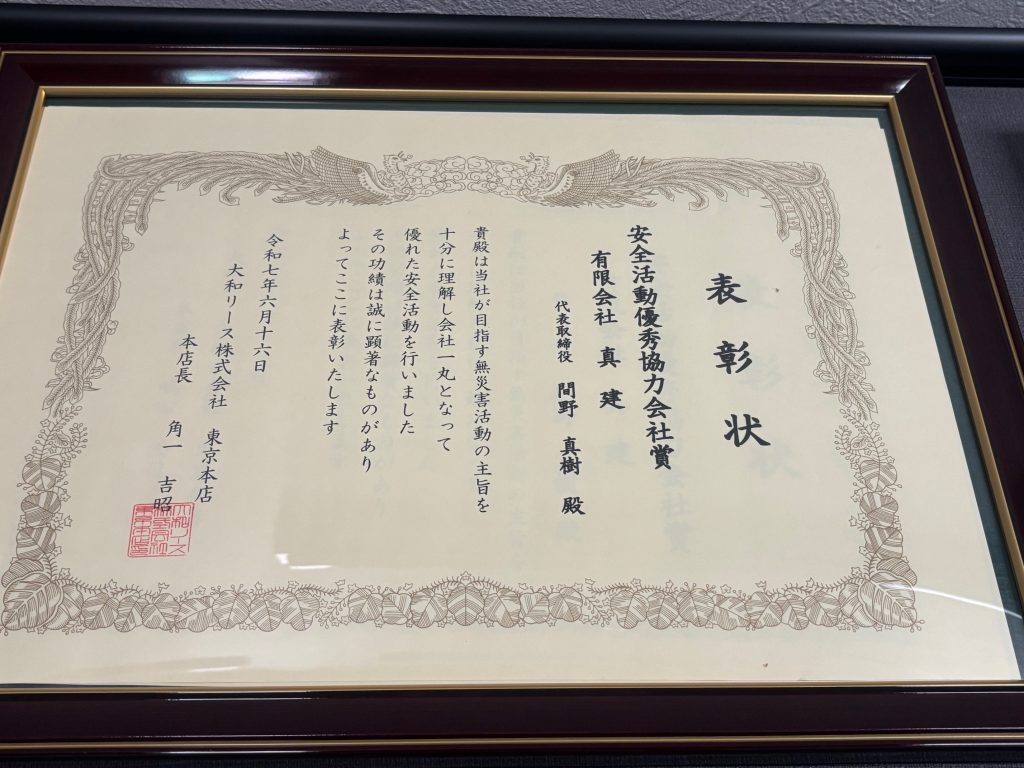 表彰状
安全活動優秀協力会社賞
有限会社 真建
代表取締役 間野 真樹 殿
貴殿は当社が目指す無災害活動の主旨を
十分に理解し会社一丸となって
優れた安全活動を行いました
その功績は誠に顕著なものがあり
よってここに表彰いたします
令和七年六月十六日
大和リース株式会社 東京本店
本店長 角一 吉昭